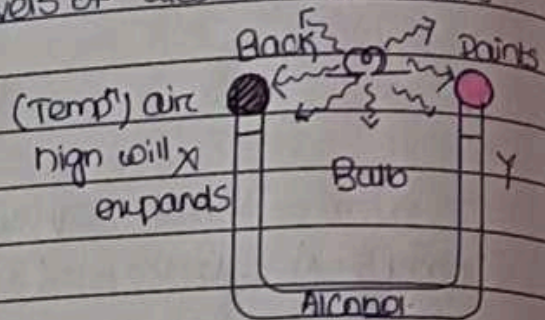 Back Paints
(Tempⁿ) air
high will X
expands
Barb
Y
Alcohol